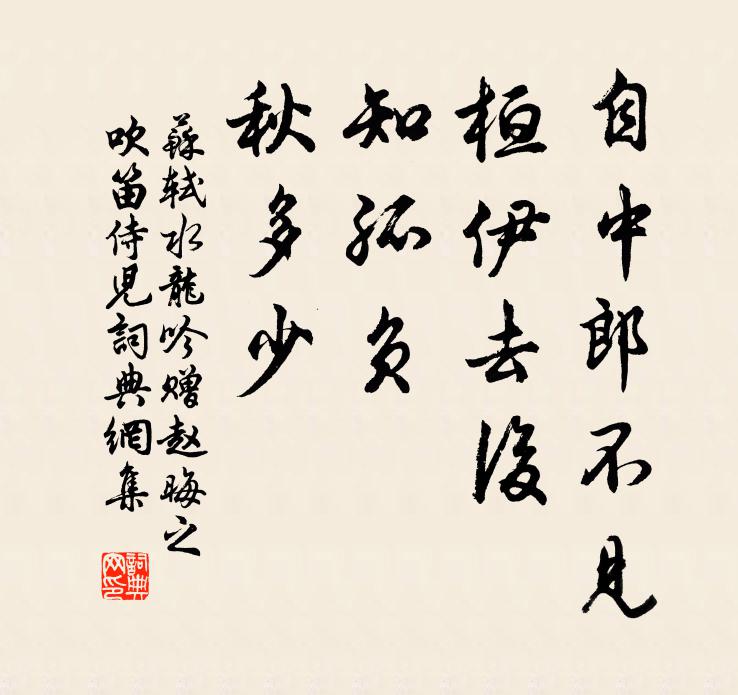 自中郎不見
桓伊去後
知孤負
秋多少
蘇軾水龍吟贈赵晦之
吹笛侍児詞典網集
詞典
网印